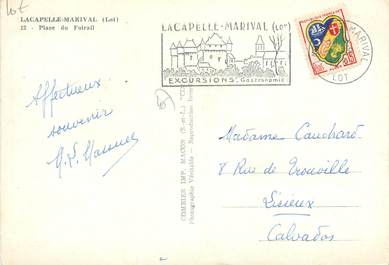 Lot
LACAPELLE-MARIVAL (Lot)
12 - Place du Foirail
LACAPELLE-MARIVAL (LOT)
EXCURSIONS. Gastronomie
MARIVAL
LOT
Affectueux
souvenir
COMBIER IMP. MACON (S.-et-L.)
Photographie Véritable - Reproduction
Madame Cauchard
8 Rue de Trouville
Lisieux
Calvados